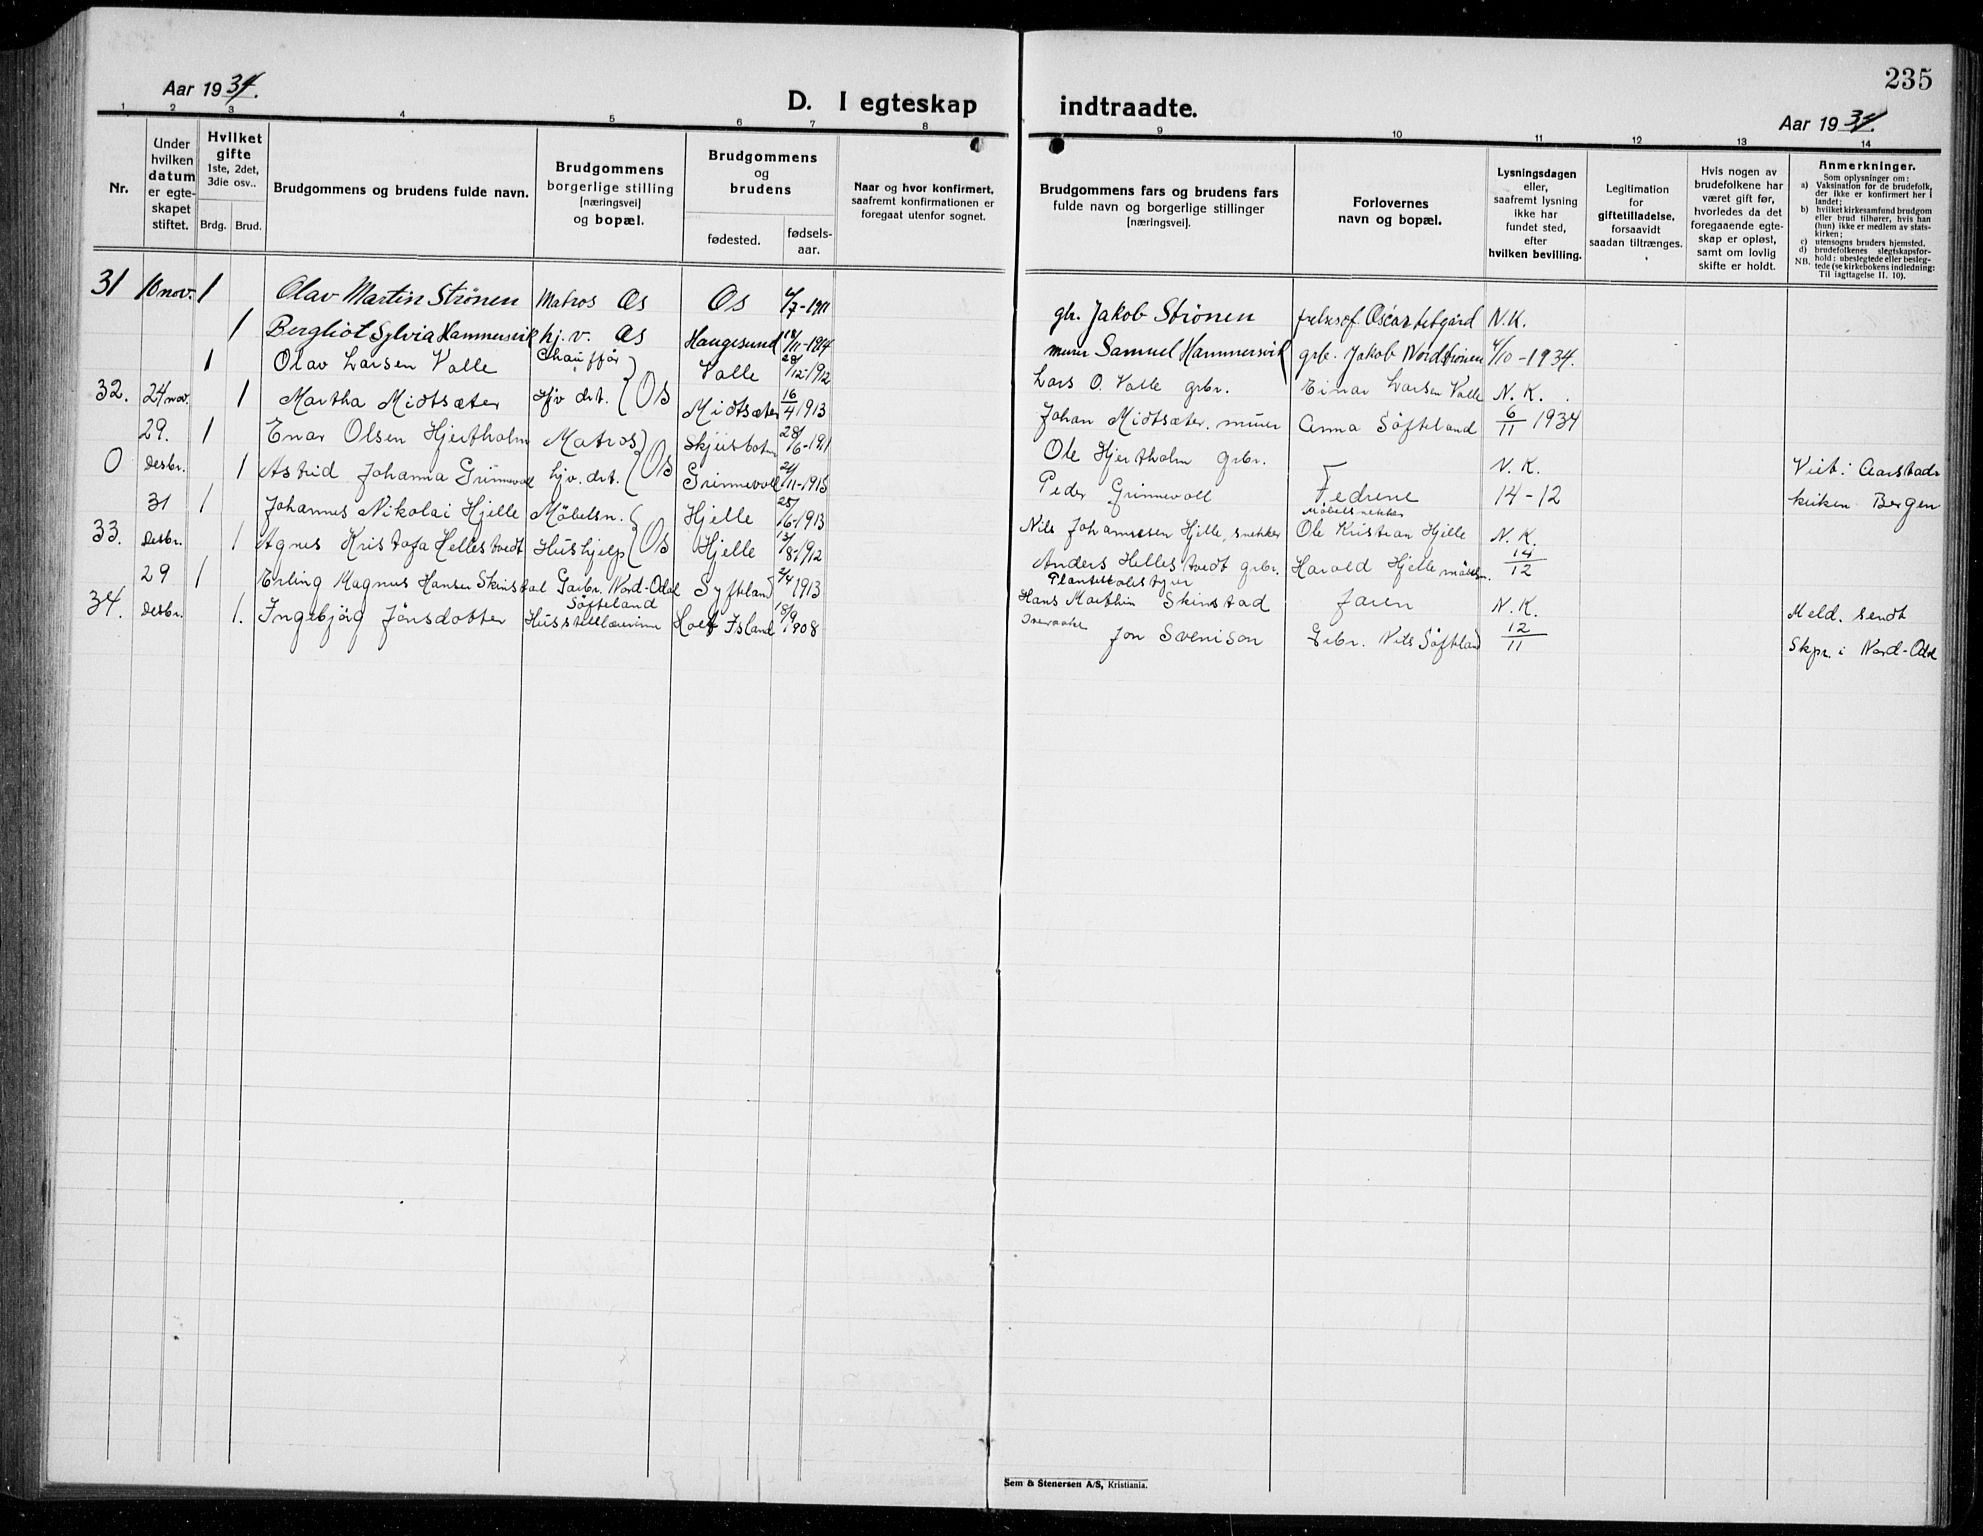 235
Aar 1934.
D. I egteskap indtraadte.
Aar 1934.
1 2 3 4 5 6 7 8 9 10 11 12 13 14
Nr.
Under hvilken datum er egteskapet stiftet.
Hvilket gifte 1ste, 2det, 3die osv..
Brdg. Brud.
Brudgommens og brudens fulde navn.
Brudgommens borgerlige stilling [næringsvei] og bopæl.
Brudgommens og brudens
fødested. fødselsaar.
Naar og hvor konfirmert, saafremt konfirmationen er foregaat utenfor sognet.
Brudgommens fars og brudens fars fulde navn og borgerlige stillinger [næringsvei].
Forlovernes navn og bopæl.
Lysningsdagen eller, saafremt lysning ikke har fundet sted, efter hvilken bevilling.
Legitimation for giftetilladelse, forsaavidt saadan tiltrænges.
Hvis nogen av brudefolkene har været gift før, hvorledes da det foregaaende egteskap er opløst, samt om lovlig skifte er holdt.
Anmerkninger.
Som oplysninger om:
a) Vaksination for de brudefolk, der ikke er konfirmert her i landet;
b) hvilket kirkesamfund brudgom eller brud tilhører, hvis han (hun) ikke er medlem av statskirken;
c) utensogns bruders hjemsted.
d) brudefolkenes slegtskapsforhold; ubeslegtede eller beslegtede (se kirkebokens indledning:
NB. Til iagttagelse II. 10).
31 10 nov. 1 Olav Martin Strönen Matros Os Os 4/7-1911 gbr. Jakob Strönen frelsesof. Oscar N.K.
1 Bergliot Sylvia Hammersvik hj. v. Os Haugesund 11-1914 murer Samuel Hammersvik grb. Jakob Nordströnen 4/10-1934.
1 Olav Larsen Valle Chaufför Valle 28/12-1912 Lars O. Valle grbr. Einar Larsen Valle N. K.
32. 24 nov. 1 Martha Midtsæter Hjv drt. Os Midtsæter 16/4 1913 Johan Midtsæter. murer Anna Söfteland 6/11 1934
29. 1 Enar Olsen Hjertholm Matros 28/6-1911 Ole Hjertholm grbr. N. K. Viet i Aarstads
0 Desbr. 1 Astrid Johanna Grinnevoll hjv. drt. Os Grinnevoll 24/11-1915 Peder Grinnevoll Fedrene 14-12 kirken Bergen
31 1 Johannes Nikolai Hjelle Möbelsn. Hjelle 25/6-1913 Nils Johannesen Hjelle, snekker Möbelsnekker Ole Kristian Hjelle N. K.
33. Desbr. 1 Agnes Kristofa Hellestvedt Hushjelp Os Hjelle 13/8-1912 Anders Hellestvedt grbr. Harald Hjelle möbelsn. 14/12
29 1 Erling Magnus Hansen Skinstad Garbr. Nord-Odal Syfteland 2/4 1913 Hans Marthin Skinstad Jaren N. K. Meld. sendt
34. Desbr. 1. Ingebjörg Jónsdotter Söfteland Husstellærerinne Holt Island 18/9 1908 Jon Svenison Grbr. Nils Söfteland 12/11 Skpr. i Nord-Odal
Sem & Stenersen A/S, Kristiania.